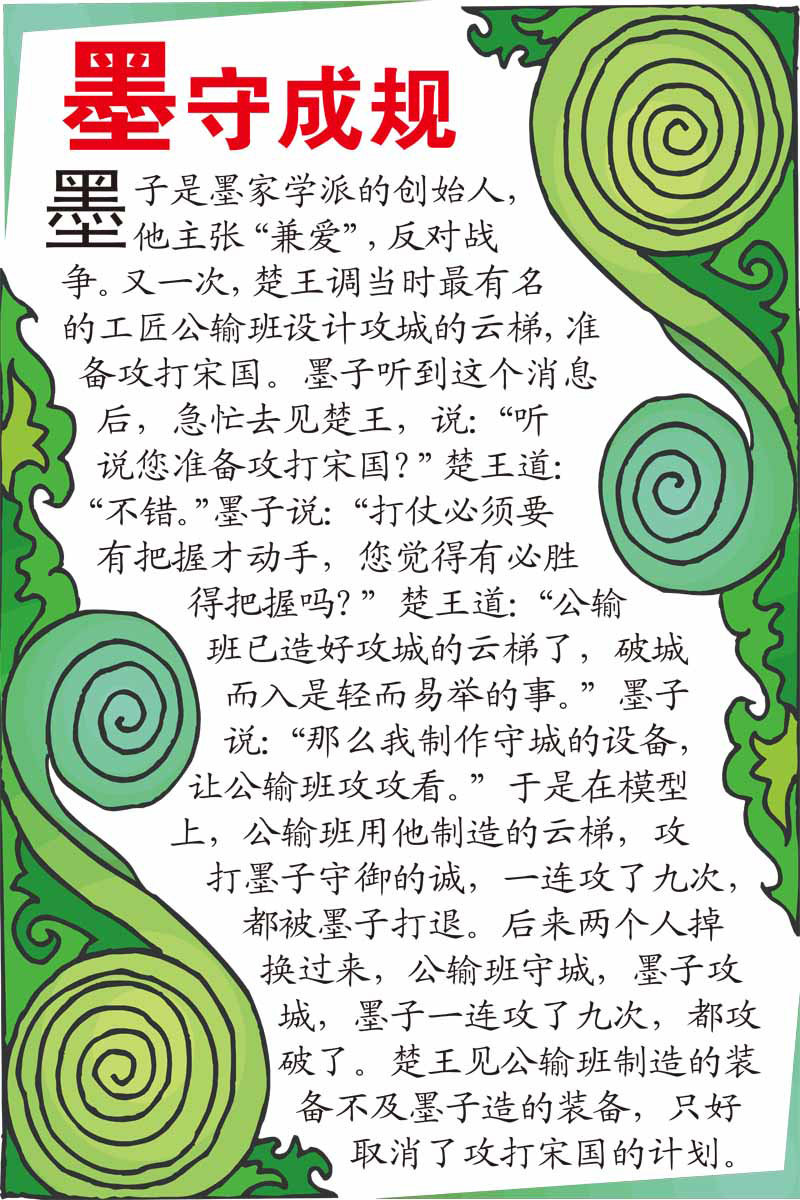 墨守成规
墨子是墨家学派的创始人，
他主张“兼爱”，反对战
争。又一次，楚王调当时最有名
的工匠公输班设计攻城的云梯，准
备攻打宋国。墨子听到这个消息
后，急忙去见楚王，说：“听
说您准备攻打宋国？”楚王道：
“不错。”墨子说：“打仗必须要
有把握才动手，您觉得有必胜
得把握吗？”楚王道：“公输
班已造好攻城的云梯了，破城
而入是轻而易举的事。”墨子
说：“那么我制作守城的设备，
让公输班攻攻看。”于是在模型
上，公输班用他制造的云梯，攻
打墨子守御的诚，一连攻了九次，
都被墨子打退。后来两个人掉
换过来，公输班守城，墨子攻
城，墨子一连攻了九次，都攻
破了。楚王见公输班制造的装
备不及墨子造的装备，只好
取消了攻打宋国的计划。